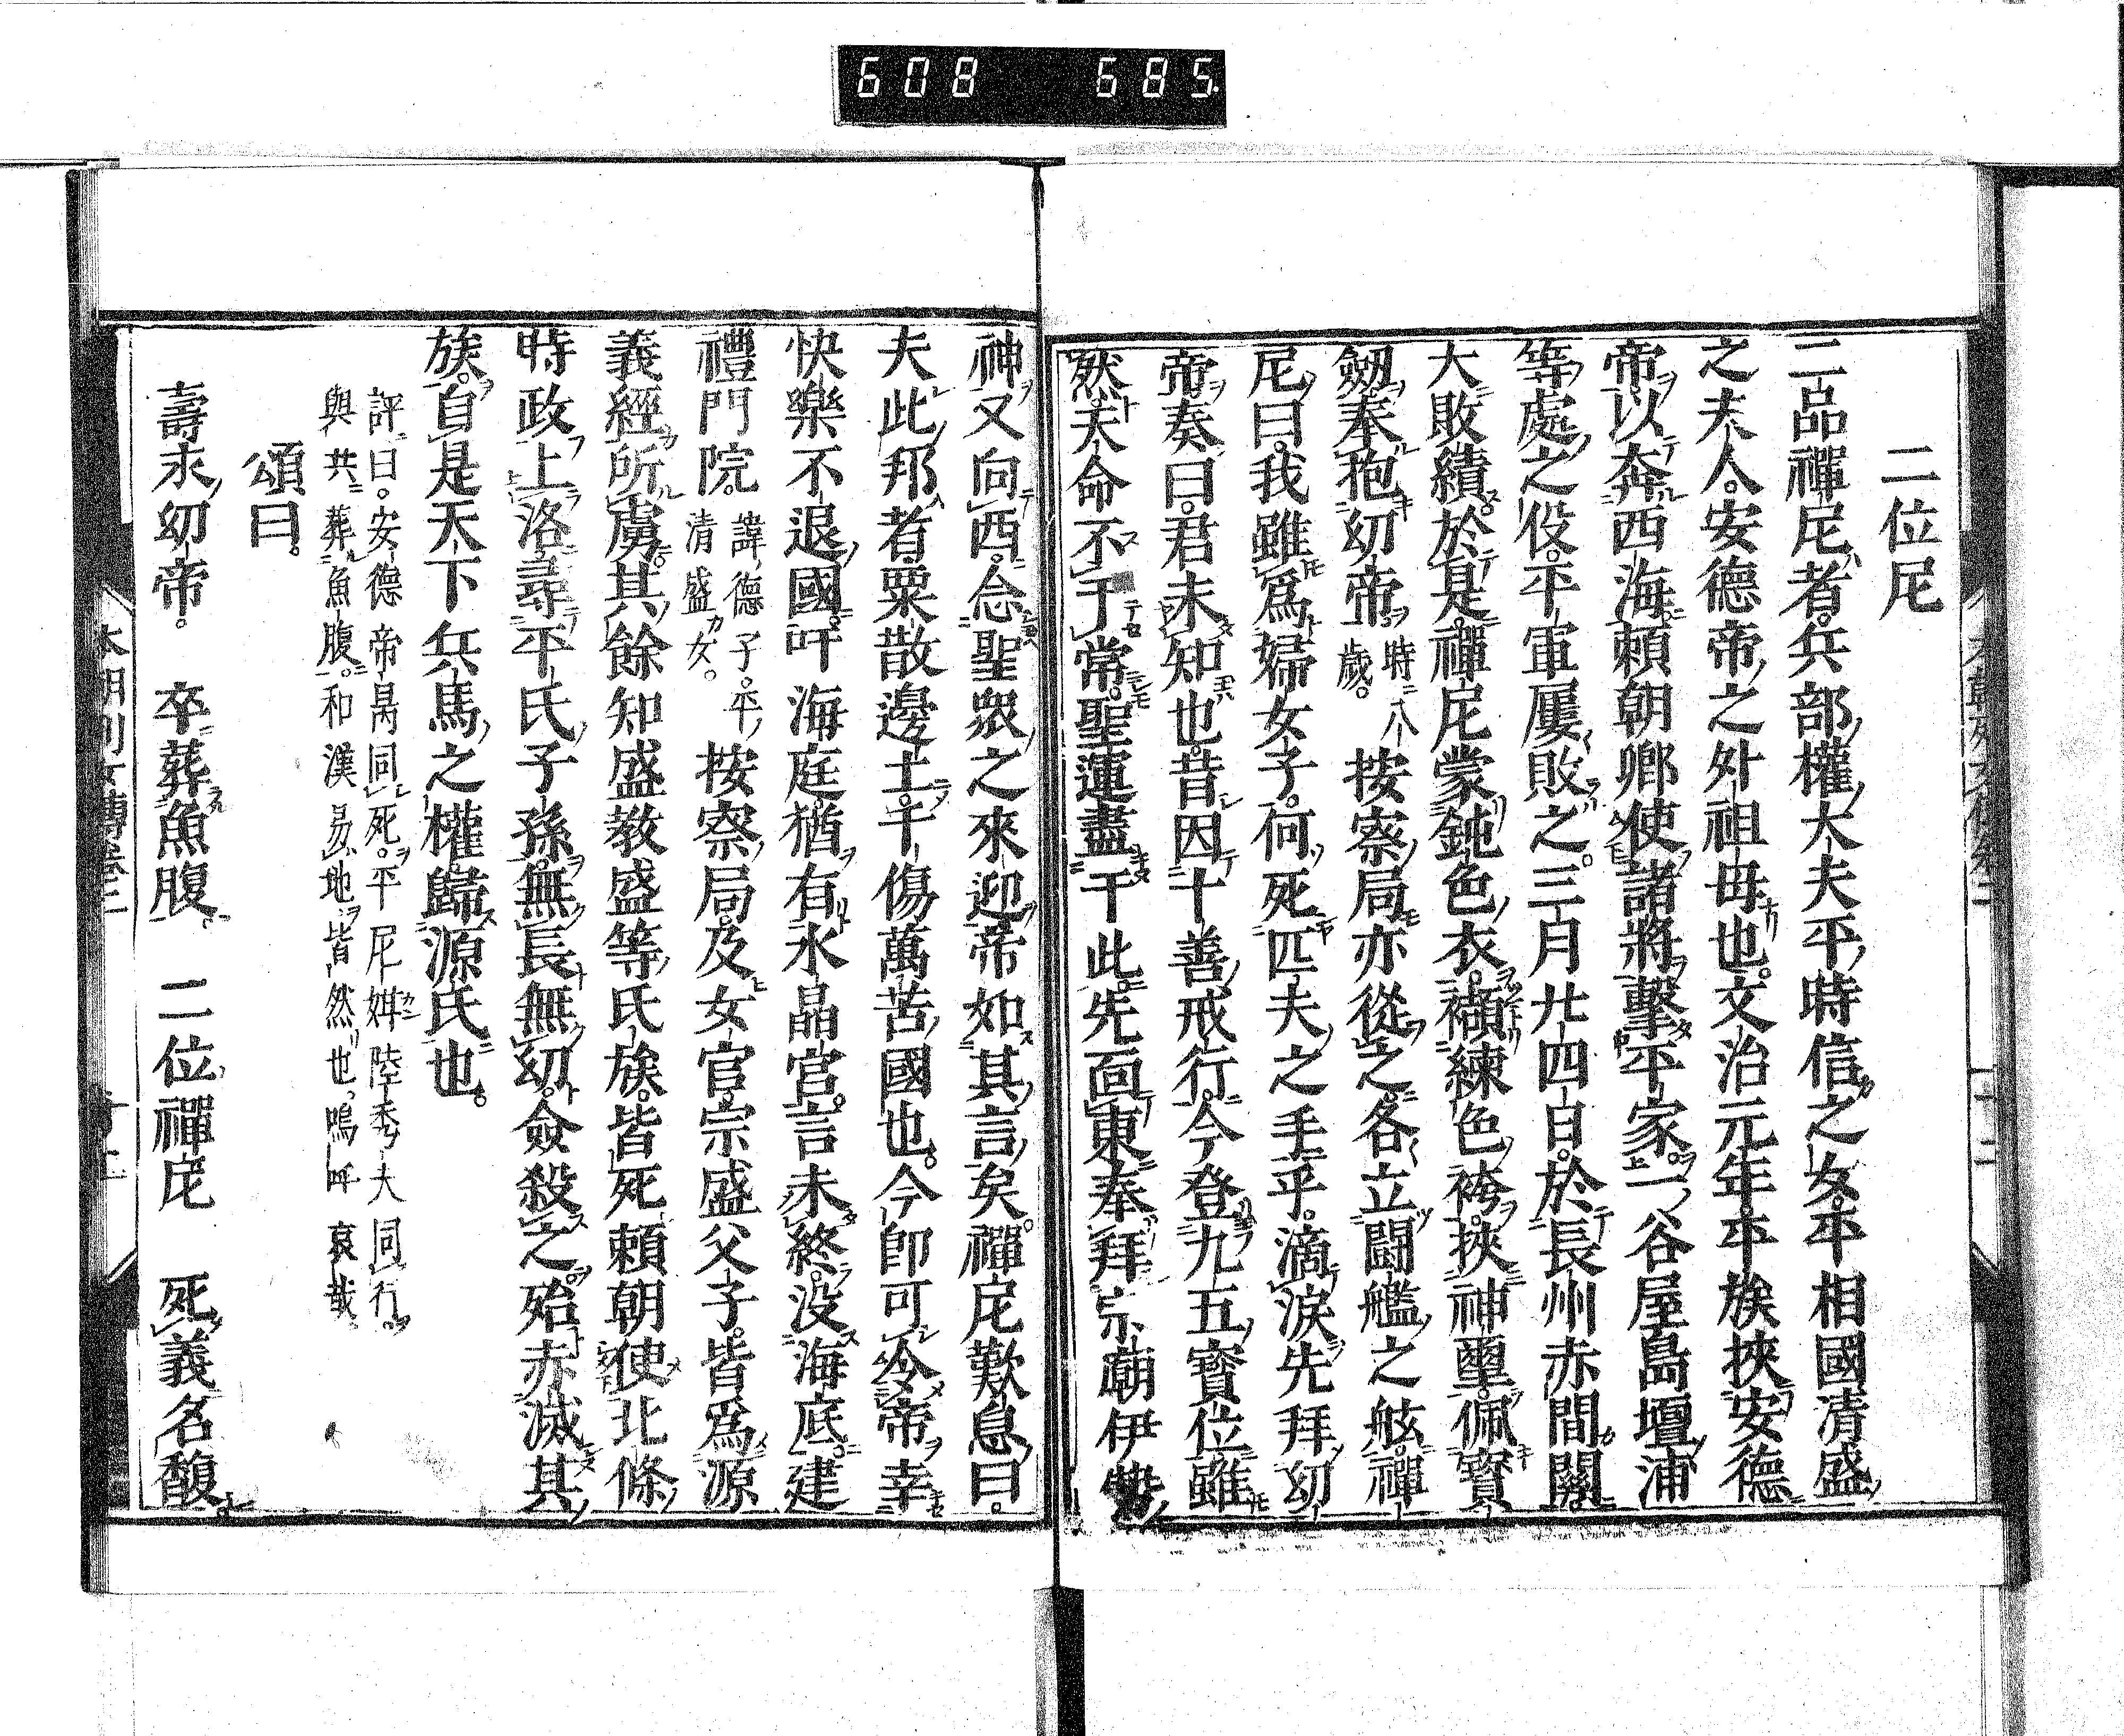 608 685
二位尼
二品禪尼者。兵部權大夫平時信之女。平相國清盛
之夫人。安德帝之外祖母也。文治元年。平族挾安德
帝。以奔西海。賴朝卿使諸將擊平家。一谷屋島壇浦
等處之役。平軍屢敗之。三月廿四日。於長州赤間關
大敗績。於是禪尼蒙鈍色衣。襭練色袴。挾神璽。佩寶
劔。奉抱幼帝時八歲。按察局亦從之。各立鬪艦之舷。禪
尼曰。我雖爲婦女子。何死匹夫之手乎。滴淚先拜幼
帝。奏曰。君未知也。昔因十善戒行。今登九五寶位。雖
然。天命不于常。聖運盡于此。先面東奉拜宗廟伊勢
神。又向西。念聖衆之來迎。帝如其言矣。禪尼歎息曰。
夫此邦者。粟散邊土。千傷萬苦國也。今卽可令帝幸
快樂不退國。吁海庭猶有水晶宮。言未終。没海底。建
禮門院。諱德子。平清盛女。按察局。及女官。宗盛父子。皆爲源
義經所虜。其餘知盛敎盛等氏族。皆死。賴朝使北條
時政上洛尋平氏子孫。無長無幼。僉殺之。殆赤滅其
族。自是天下兵馬之權。歸源氏也。
評曰。安德帝昺同死。平尼媲陸秀夫同行。
與共葬魚腹。和漢易地皆然也。嗚呼哀哉。
頌曰。
壽永幼帝。 卒葬魚腹 二位禪尼 死義名馥。
本朝列女傳卷二